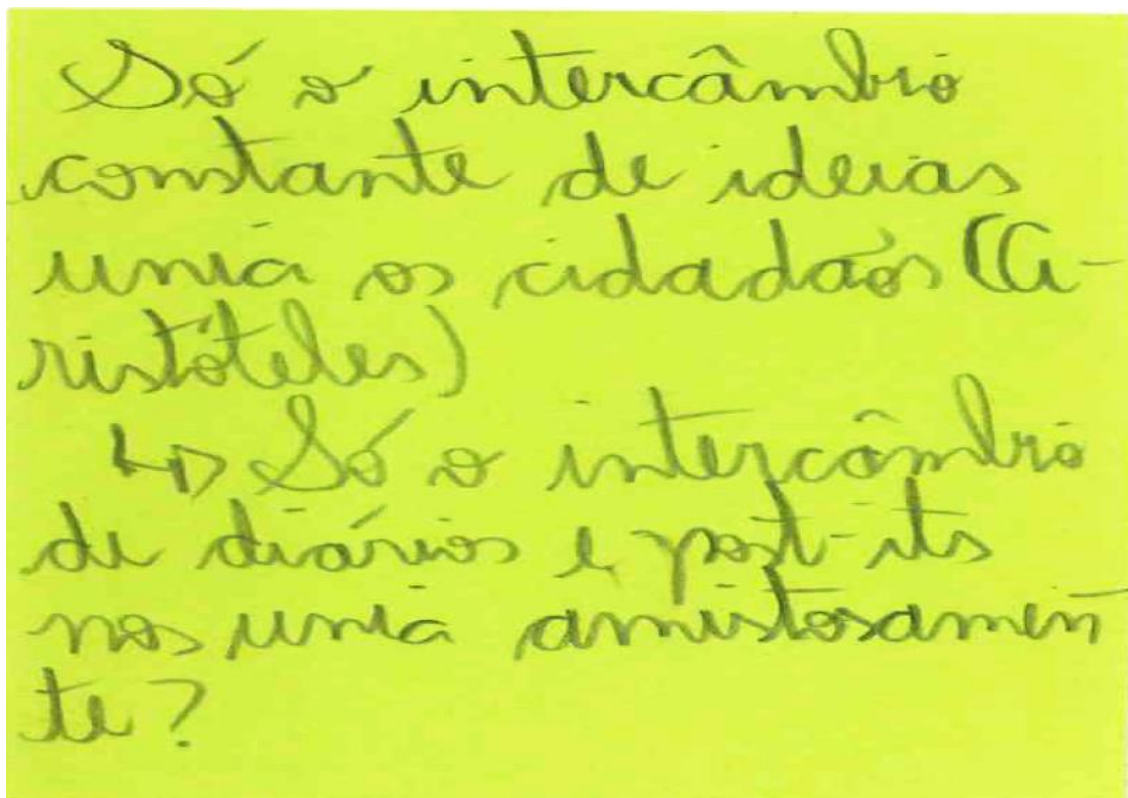 Só o intercâmbio
constante de ideias
unia os cidadãos (A-
ristóteles)
↳ Só o intercâmbio
de diários e post-its
nos unia amistosamen
te?